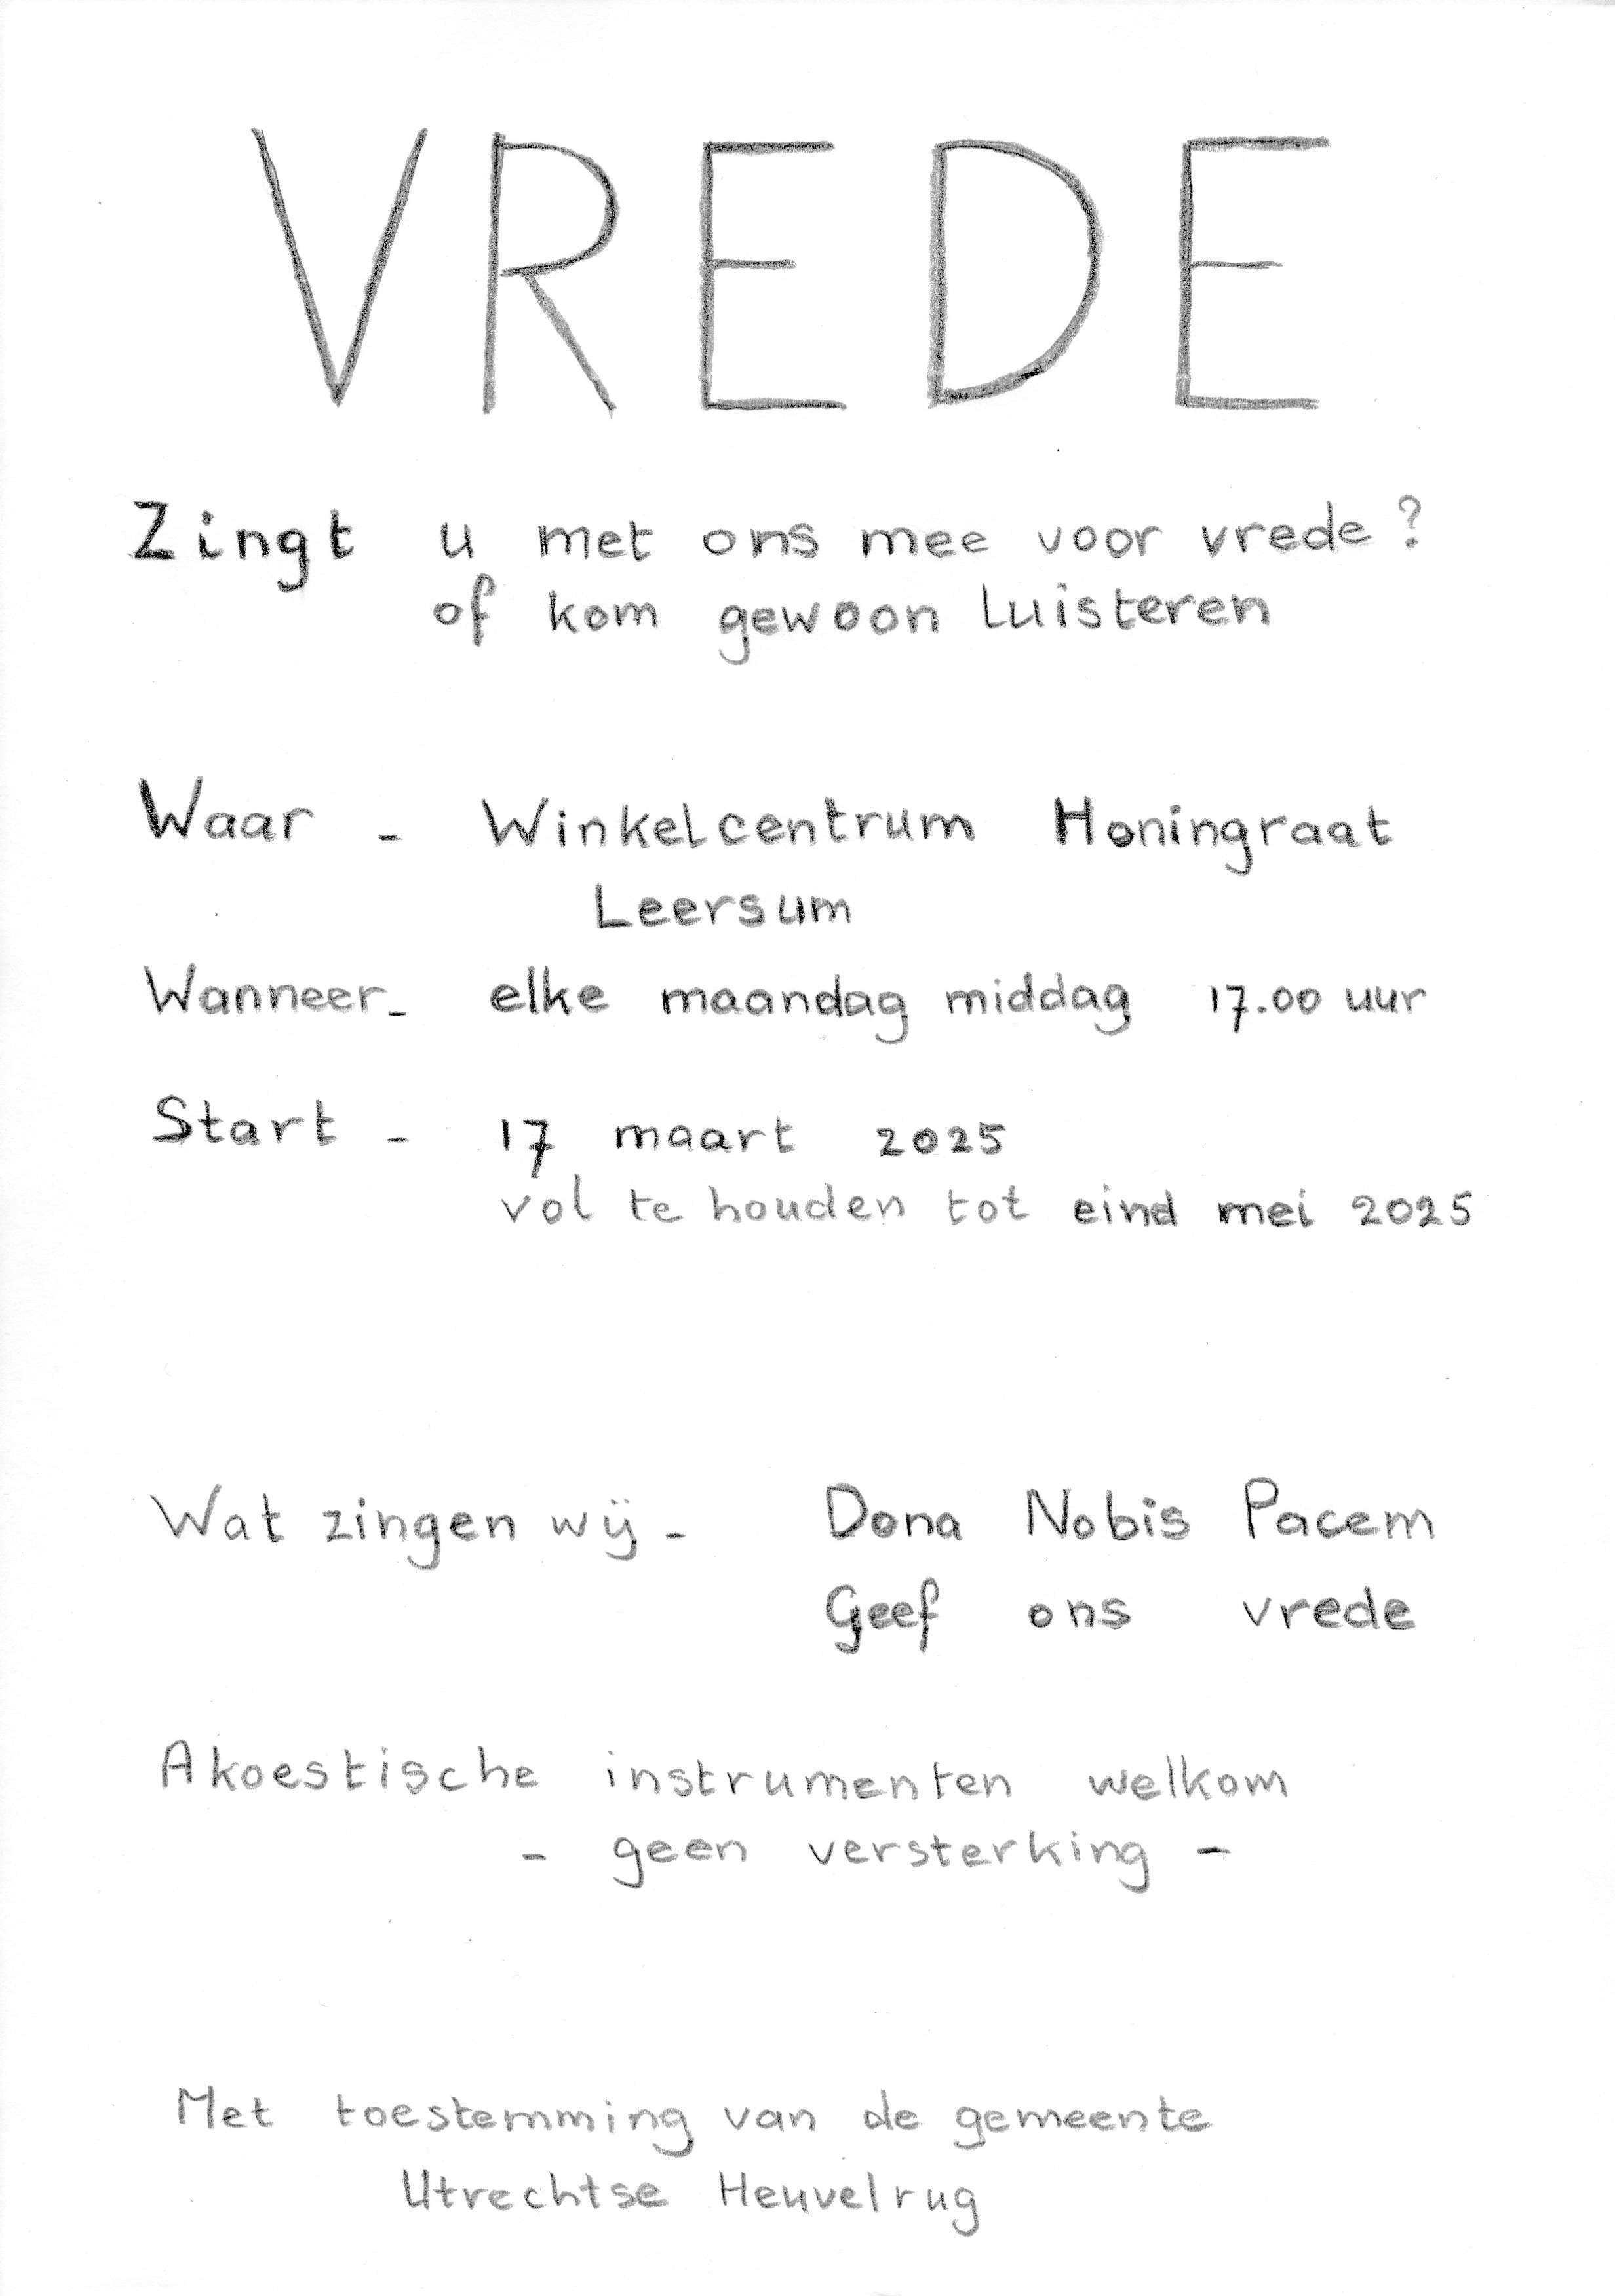 VREDE
Zingt u met ons mee voor vrede?
of kom gewoon luisteren
Waar - Winkelcentrum Honingraat
Leersum
Wanneer - elke maandag middag 17.00 uur
Start - 17 maart 2025
vol te houden tot eind mei 2025
Wat zingen wij - Dona Nobis Pacem
Geef ons vrede
Akoestische instrumenten welkom
- geen versterking -
Met toestemming van de gemeente
Utrechtse Heuvelrug